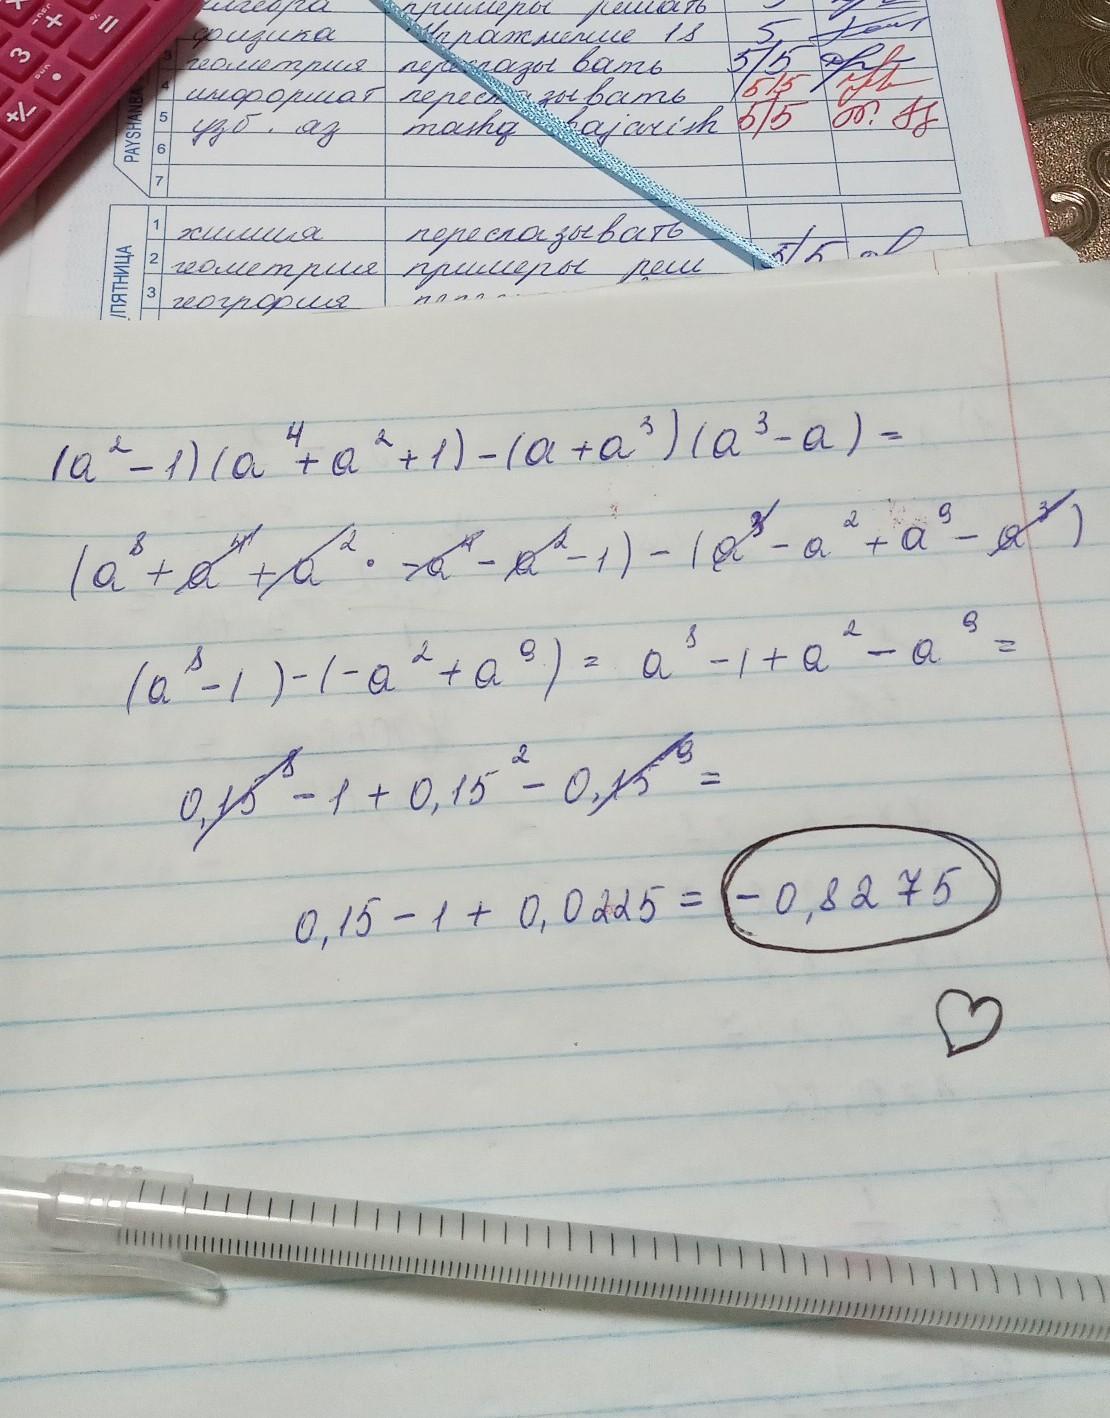 алгебра примеры решать 5
физика Упражнение 18 5
3 геометрия пересказывать 5/5
4 информат пересказывать 5/5
5 узб. яз mashq bajarish 5/5
6
7
PAYSHANBA
1 химия пересказывать
2 геометрия примеры реш 5/5
3 география
/ПЯТНИЦА
3 + =
+/- •
(a² - 1)(a⁴ + a² + 1) - (a + a³)(a³ - a) =
(a⁸ + a⁴ + a² · - a⁴ - a² - 1) - (a³ - a² + a⁹ - a³)
(a⁸ - 1) - (- a² + a⁹) = a⁸ - 1 + a² - a⁹ =
0,15⁸ - 1 + 0,15² - 0,15⁹ =
0,15 - 1 + 0,0225 = - 0,8275